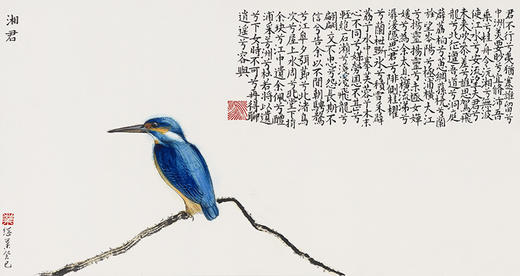 君不行兮夷猶蹇誰留兮
中洲美要眇兮宜脩沛吾
乘兮桂舟令沅湘兮無波
使江水兮安流望夫君兮
未來吹參差兮誰思駕飛
龍兮北征邅吾道兮洞庭
薜荔柏兮蕙綢蓀橈兮蘭
旌望涔陽兮極浦橫大江
兮揚靈揚靈兮未極女嬋
媛兮為余太息橫流涕兮
潺湲隱思君兮陫側桂櫂
兮蘭枻斲冰兮積雪采薜
荔兮水中搴芙蓉兮木末
心不同兮媒勞恩不甚兮
輕絕石瀨兮淺淺飛龍兮
翩翩交不忠兮怨長期不
信兮告余以不閒朝騁騖
兮江皋夕弭節兮北渚鳥
次兮屋上水周兮堂下捐
余玦兮江中遺余佩兮醴
浦采芳洲兮杜若將以遺
兮下女時不可兮再得聊
逍遙兮容與
湘君
癸巳